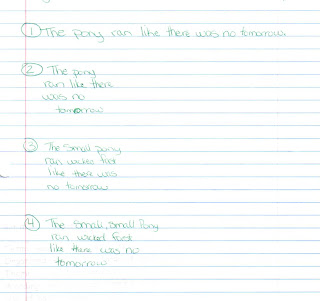 ① The pony ran like there was no tomorrow.
② The pony
ran like there
was no
tomorrow
③ The small pony
ran wicked fast
like there was
no tomorrow
④ The small, small Pony
ran wicked fast
like there was no
tomorrow